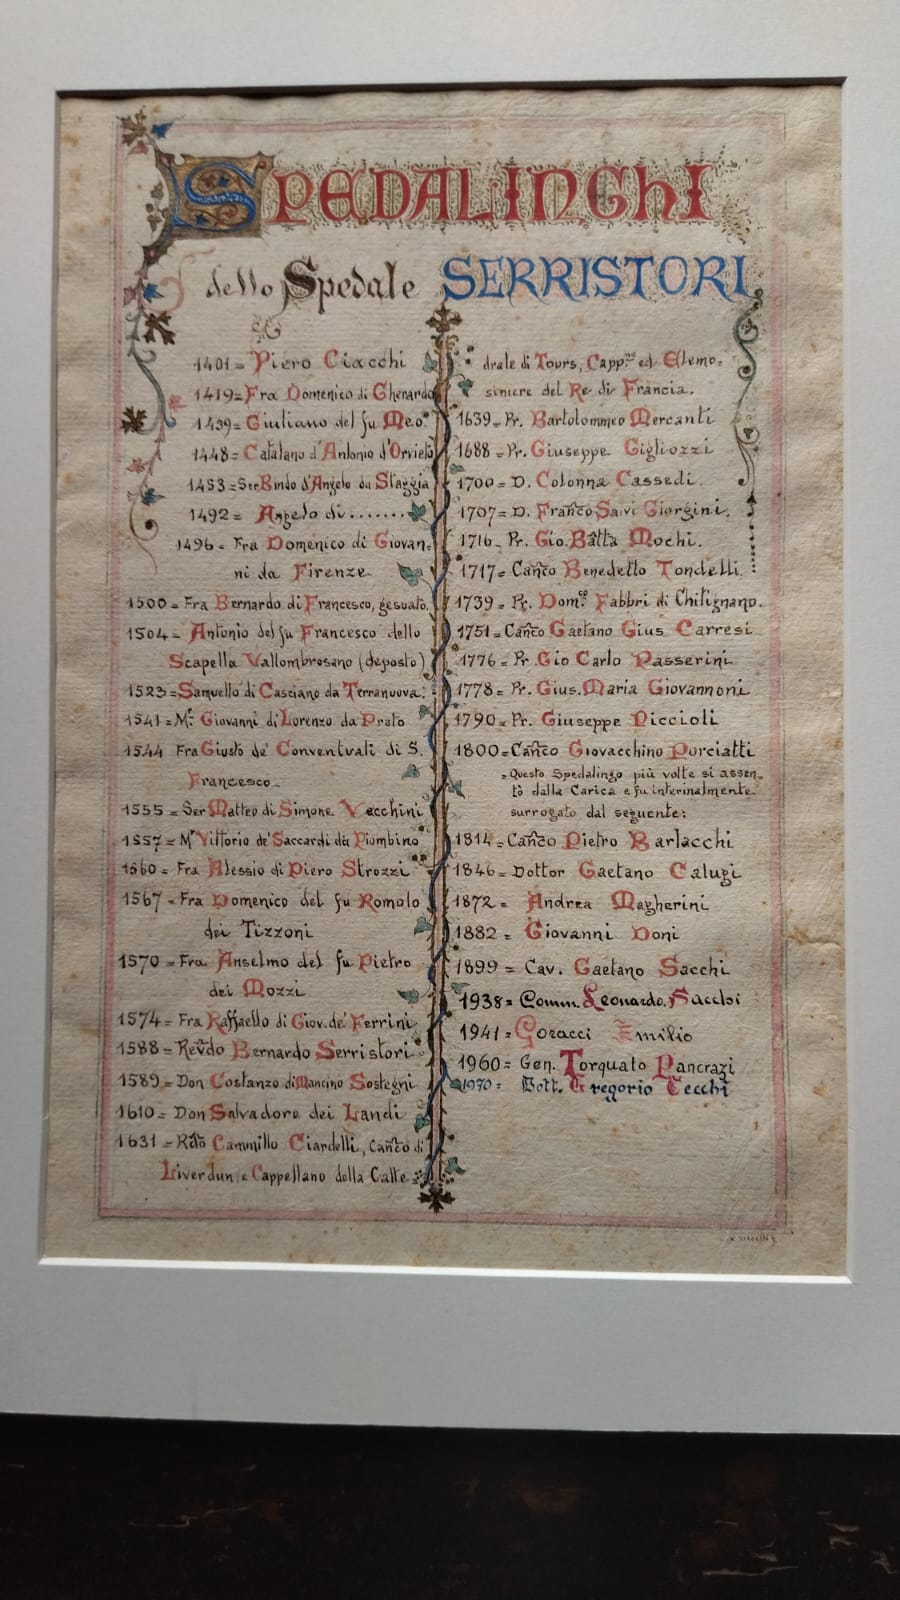 SPEDALINGHI
dello Spedale SERRISTORI
1401= Piero Ciacchi
1419= Fra Domenico di Gherardo
1439= Giuliano del fu Meo.
1448= Catalano d'Antonio d'Orvieto
1453= Ser Bindo d'Angelo da Staggia
1492= Angelo di........
1496= Fra Domenico di Giovan=
ni da Firenze
1500= Fra Bernardo di Francesco, gesuato.
1504= Antonio del fu Francesco dello
Scapella Vallombrosano (deposto)
1523= Samuello di Casciano da Terranuova.
1541= Mr. Giovanni di Lorenzo da Prato
1544 Fra Giusto de' Conventuali di S.
Francesco
1555= Ser Matteo di Simone Vecchini
1557= Mr Vittorio de' Saccardi da Piombino
1560= Fra Alessio di Piero Strozzi
1567= Fra Domenico del fu Romolo
dei Tizzoni
1570= Fra Anselmo del fu Pietro
dei Mozzi
1574= Fra Raffaello di Giov. de' Ferrini
1588= Revdo Bernardo Serristori
1589= Don Costanzo di Mancino Sostegni
1610= Don Salvadore dei Landi
1631= Rdo Cammillo Ciardelli, Canco di
Liverdun e Cappellano della Catte=
drale di Tours, Cappno ed Elemo=
siniere del Re di Francia.
1639= Pr. Bartolommeo Mercanti
1688= Pr. Giuseppe Gigliozzi
1700= D. Colonna Cassedi.
1707= D. Franco Salvi Giorgini.
1716= Pr. Gio. Batta Mochi.
1717= Canco Benedetto Tondelli.
1739= Pr. Domco Fabbri di Chitignano.
1751= Canco Gaetano Gius Carresi
1776= Pr. Gio Carlo Passerini
1778= Pr. Gius. Maria Giovannoni
1790= Pr. Giuseppe Piccioli
1800= Canco Giovacchino Porciatti
=Questo Spedalingo più volte si assen=
tò dalla Carica e fu interinalmente
surrogato dal seguente:
1814= Canco Pietro Barlacchi
1846= Dottor Gaetano Calugi
1872= Andrea Magherini
1882= Giovanni Doni
1899= Cav. Gaetano Sacchi
1938= Comm. Leonardo Sacchi
1941= Goracci Emilio
1960= Gen. Torquato Pancrazi
1970= Dott. Gregorio Cecchi